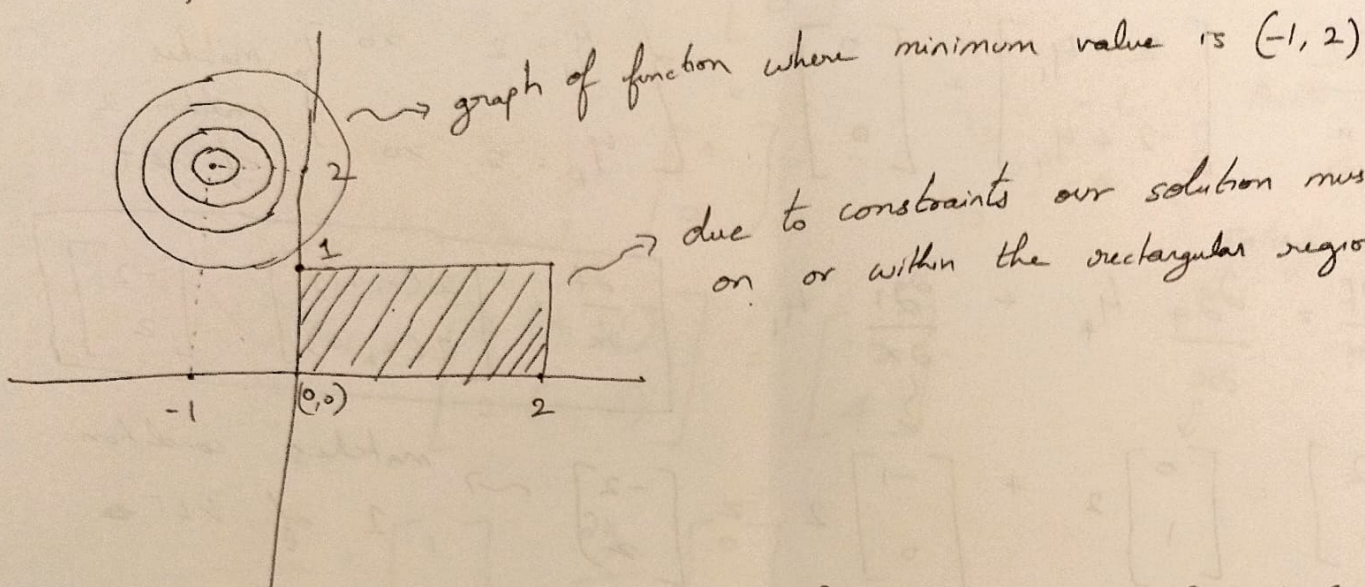 graph of function where minimum value is (-1, 2)
2
1
due to constraints our solution mus
on or within the rectangular regio
-1
(0,0)
2